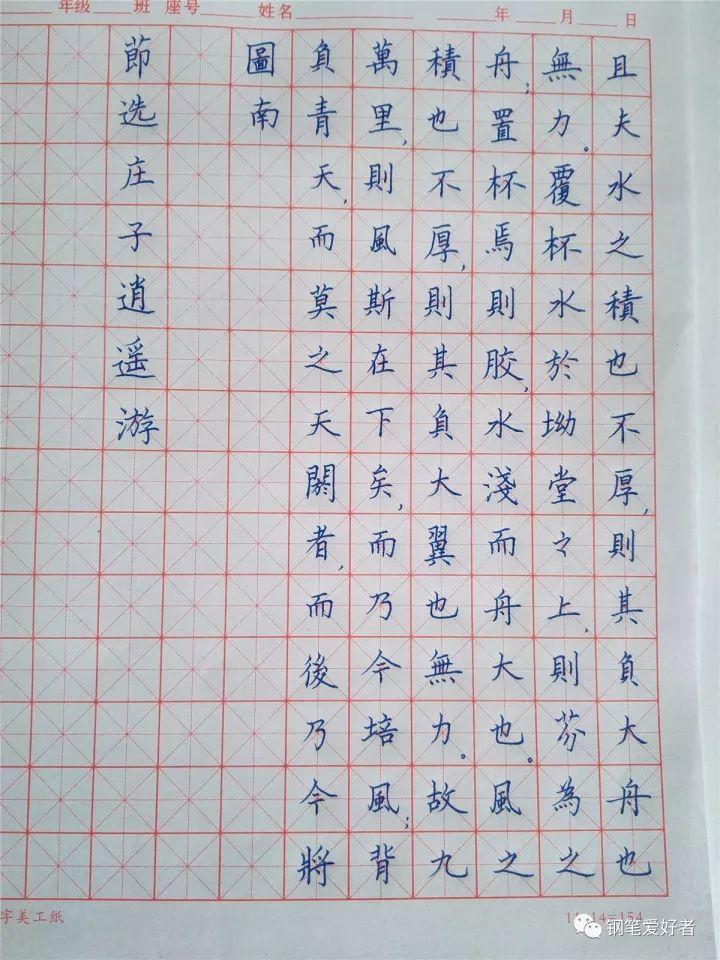 年级 班 座号 姓名 年 月 日
且夫水之積也不厚,則其負大舟也
無力。覆杯水於坳堂之上,則芬為之
舟;置杯焉則胶,水淺而舟大也。風之
積也不厚,則其負大翼也無力。故九
萬里,則風斯在下矣,而乃今培風;背
負青天,而莫之天閼者,而後乃今將
圖南
節选庄子逍遥游
字美工纸
钢笔爱好者